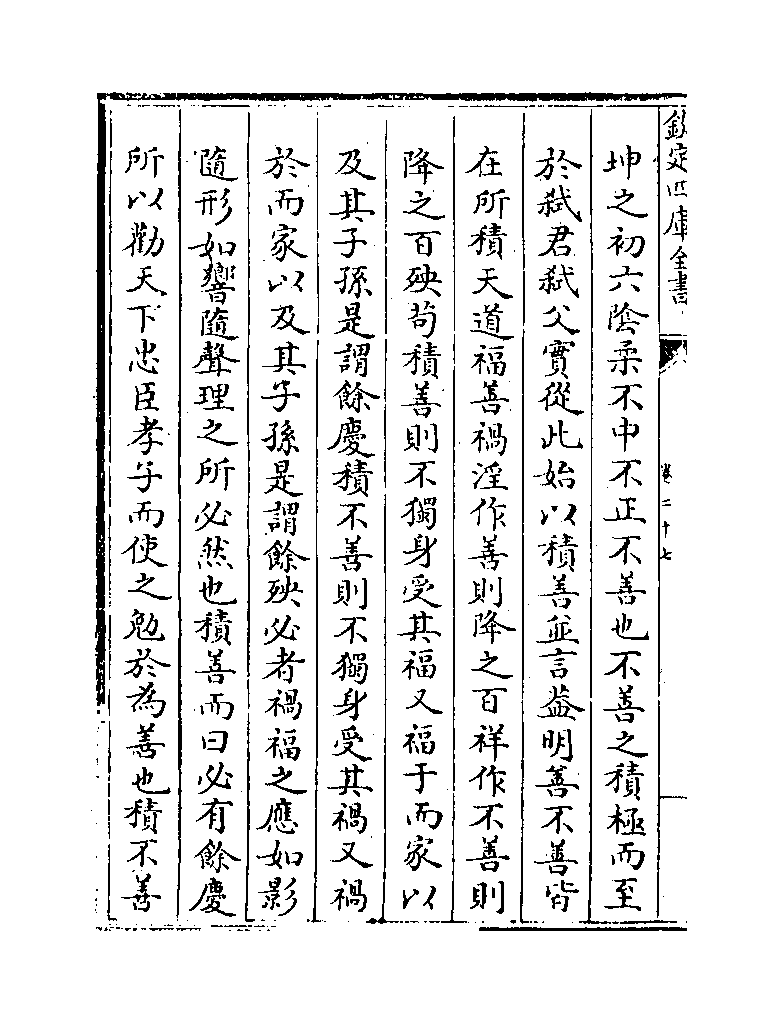 欽定四庫全書
卷二十七
坤之初六陰柔不中不正不善也不善之積極而至
於弑君弑父實從此始以積善並言葢明善不善皆
在所積天道福善禍淫作善則降之百祥作不善則
降之百殃苟積善則不獨身受其福又福于而家以
及其子孫是謂餘慶積不善則不獨身受其禍又禍
於而家以及其子孫是謂餘殃必者禍福之應如影
隨形如響隨聲理之所必然也積善而曰必有餘慶
所以勸天下忠臣孝子而使之勉於為善也積不善